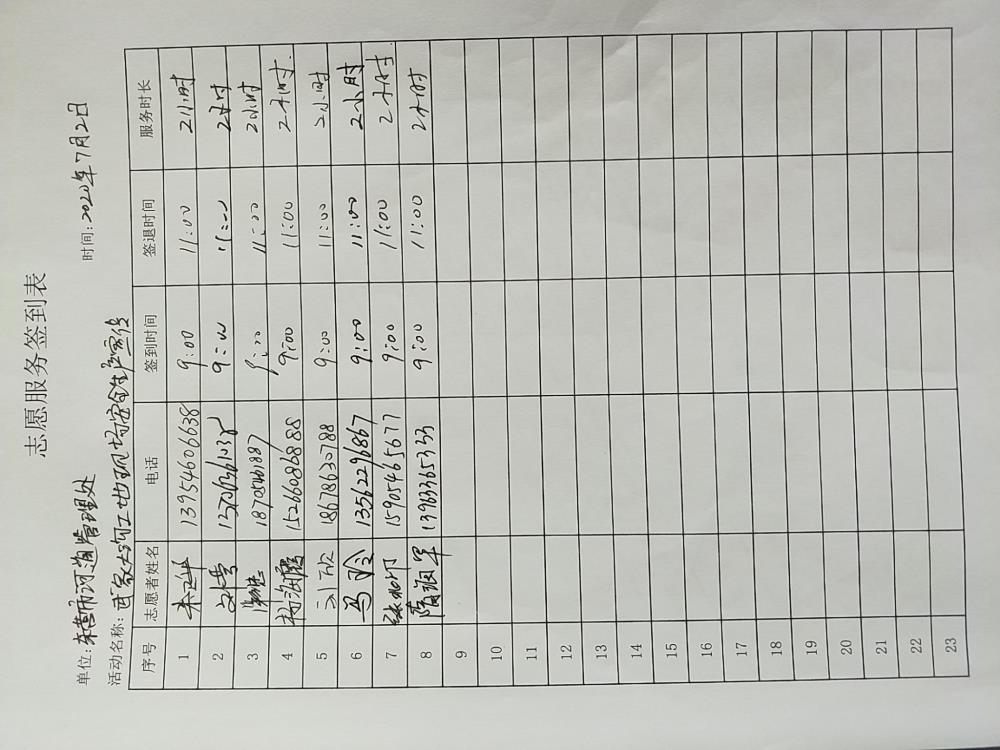 志愿服务签到表
单位:东营市河道管理处 时间:2020年7月2日
活动名称:武家大沟工地现场安全生产宣传
序号 志愿者姓名 电话 签到时间 签退时间 服务时长
1 13954606638 9:00 11:00 2小时
2 9:00 11:00 2小时
3 18705461887 9:00 11:00 2小时
4 杨海鹰 15266086888 9:00 11:00 2小时
5 刘欣 18678630788 9:00 11:00 2小时
6 马玲 13562296867 9:00 11:00 2小时
7 15905465677 9:00 11:00 2小时
8 隋润军 13963365333 9:00 11:00 2小时
9
10
11
12
13
14
15
16
17
18
19
20
21
22
23